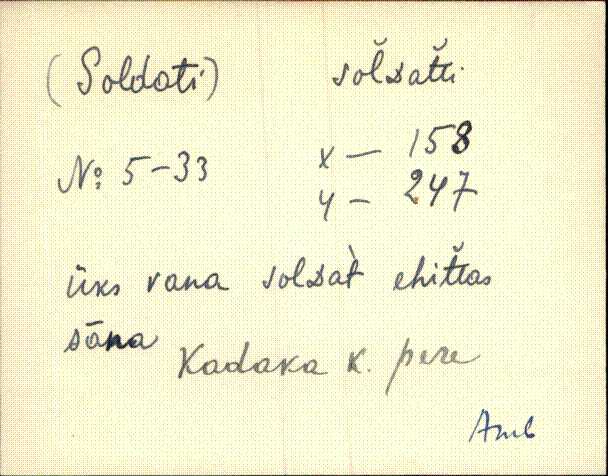 (Soldati) sŏʟᴅatˇti
№ 5-33 x — 158
y — 247
üks vana solᴅàt ehitˇtas
sāna Kadaka k. pere
Amb